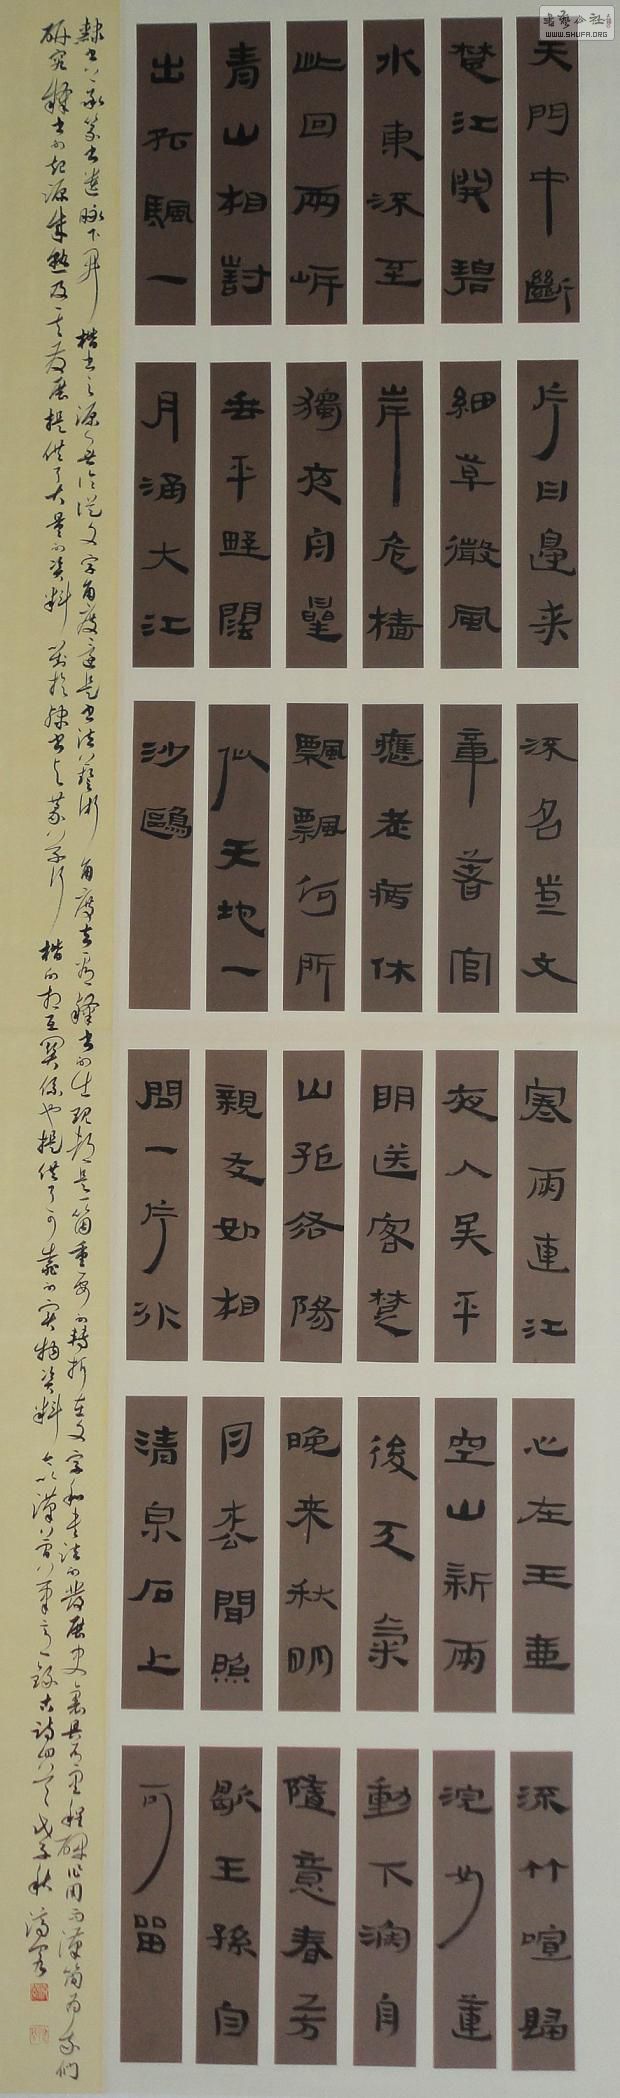 書藝公社
WWW.SHUFA.ORG
天門中斷
楚江開碧
水東流至
此回兩岸
青山相對
出孤颿一
片日邊来
細草微風
岸危檣
獨夜舟星
垂平野闊
月涌大江
流名豈文
章著官
應老病休
飄飄何所
似天地一
沙鷗
寒雨連江
夜入吴平
明送客楚
山孤洛陽
親友如相
問一片冰
心在玉壷
空山新雨
後天氣
晚来秋明
月松間照
清泉石上
流竹喧歸
浣女蓮
動下漁舟
隨意春芳
歇王孫自
可留
隸書上承篆書遺脉下開楷書之源無論從文字角度還是書法藝術角度去看隸書的出現都是一箇重要的轉折在文字和書法的發展史裏具有里程碑作用而漢簡为我們
研究隸書的起源成熟及其發展提供了大量的資料對於隸書與篆草行楷的相互關係也提供了可靠的實物資料今以漢簡筆意錄古詩四首戊子秋